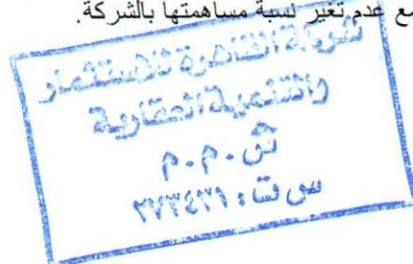 مع عدم تغير نسبة مساهمتها بالشركة.
شركة القاهرة للاستثمار
والتنمية العقارية
ش.م.م
س ت: ٢٧٣٤٣١